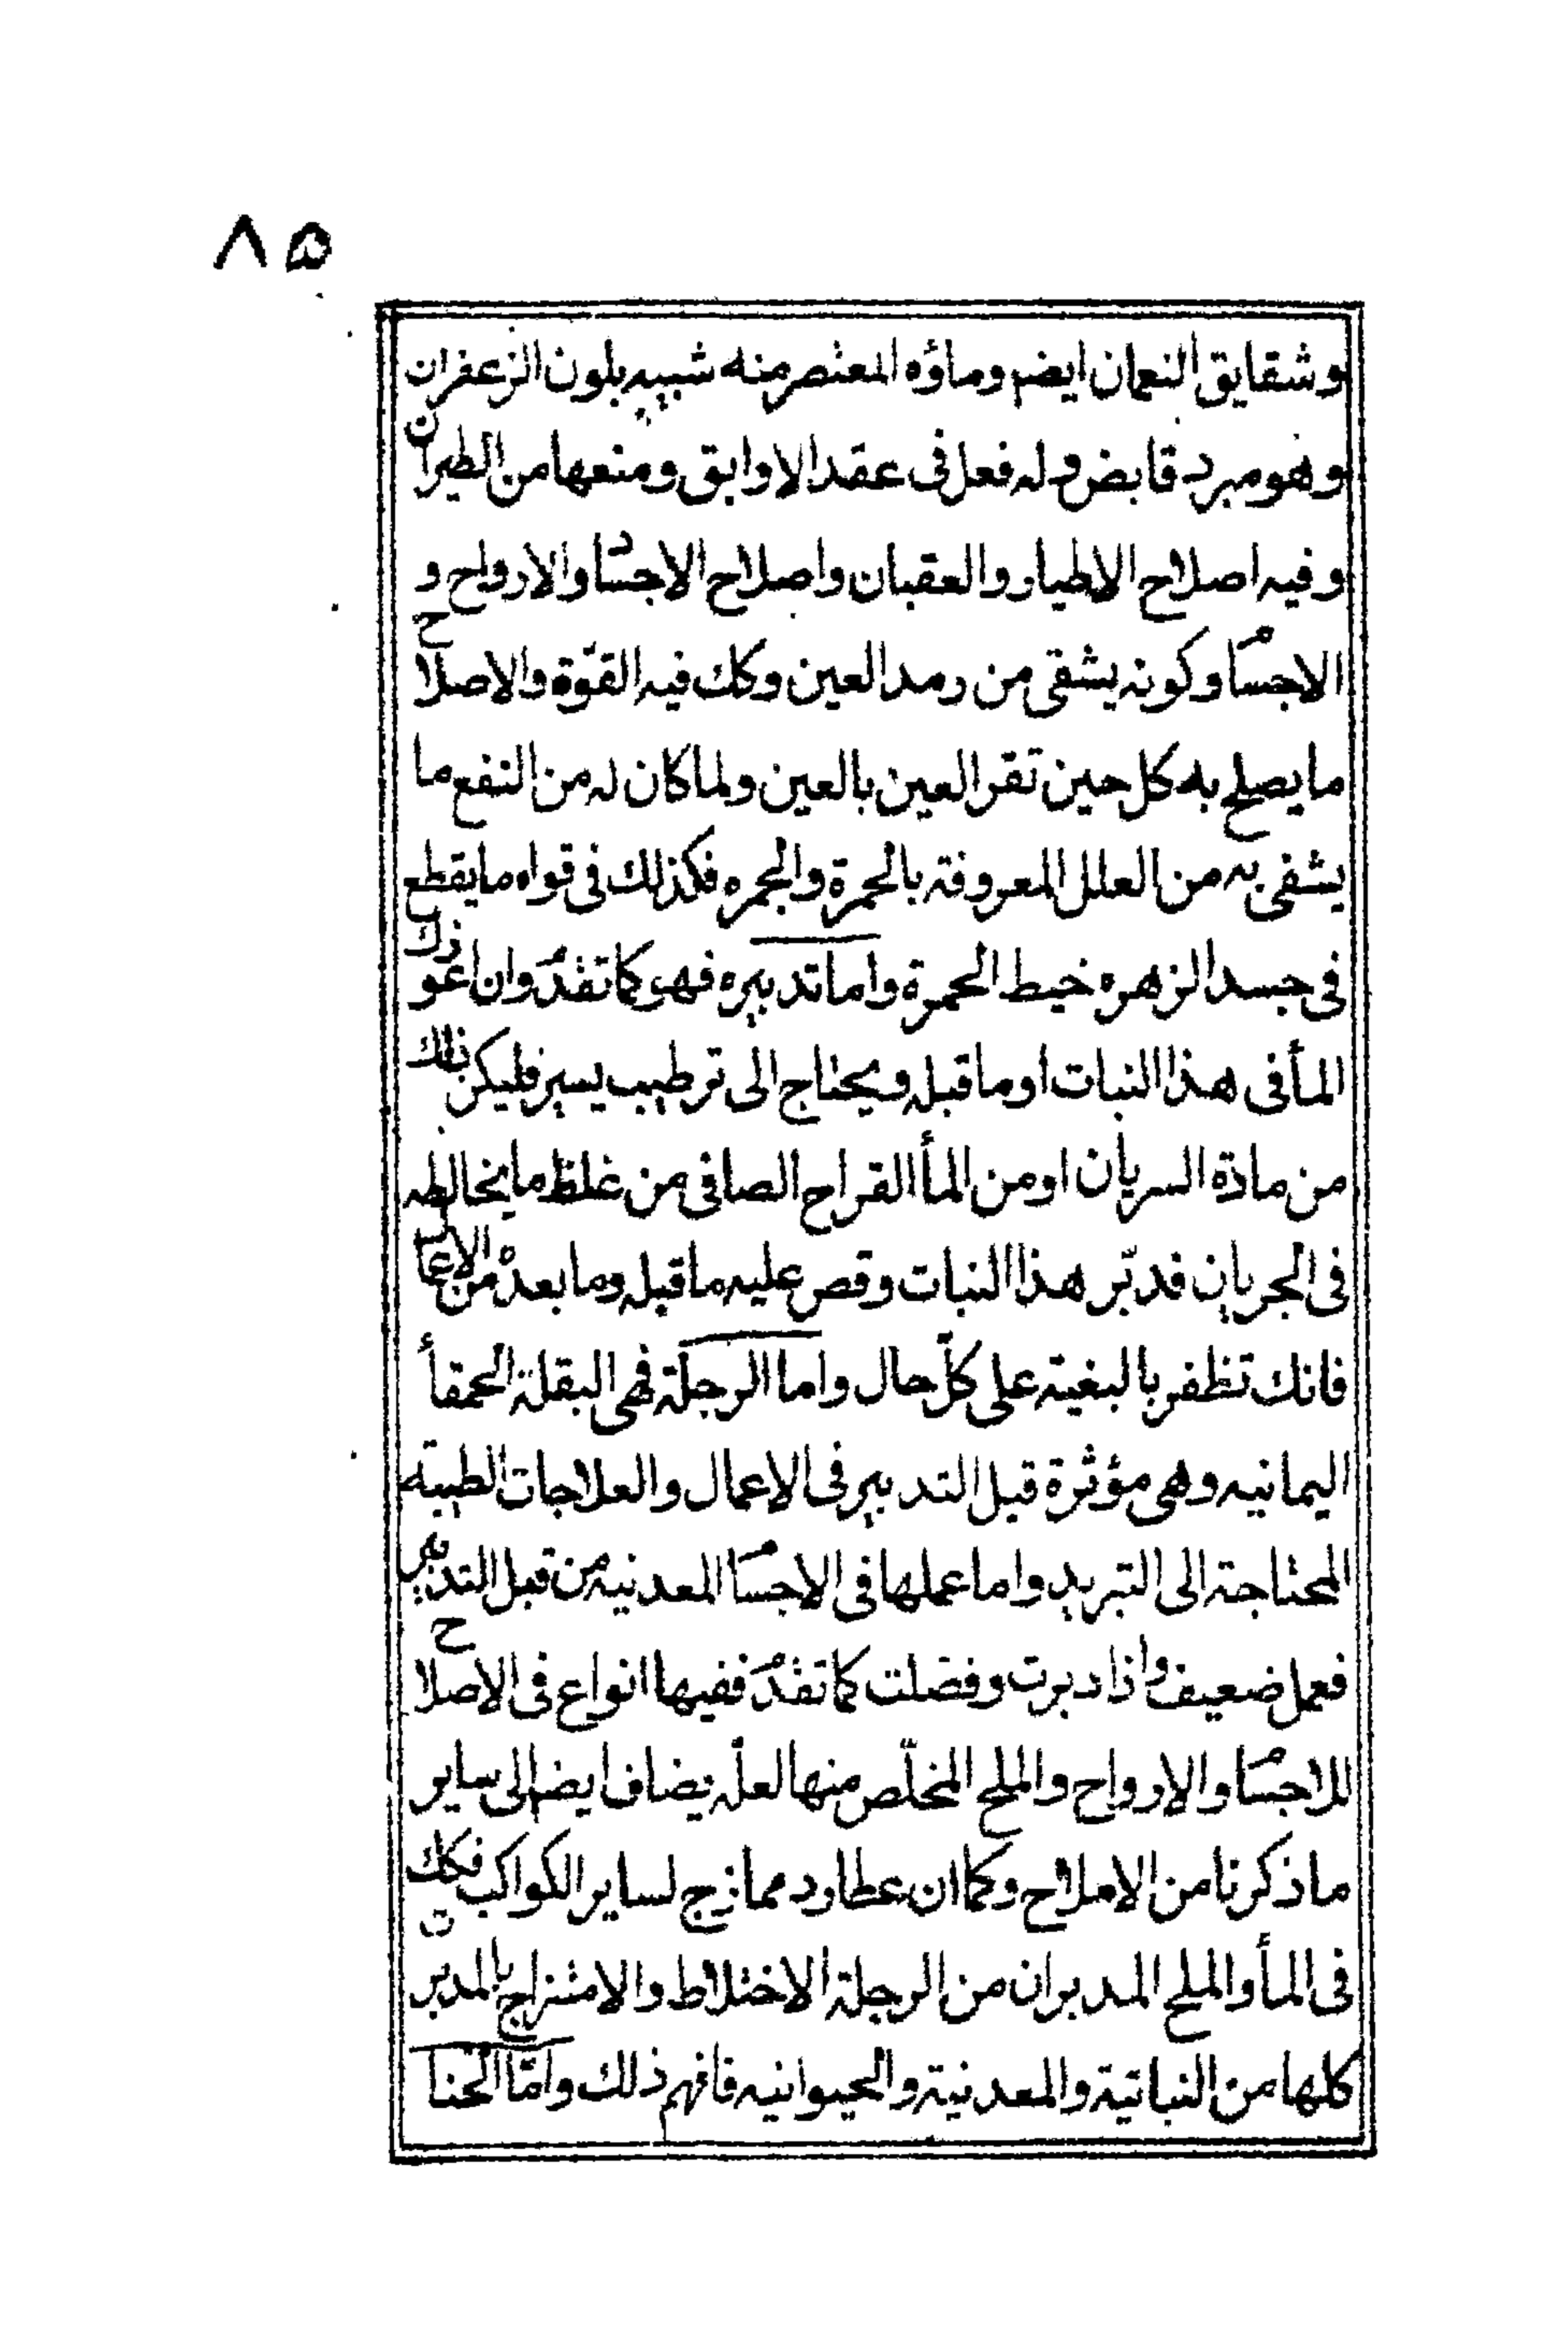 ٨٥
وشقايق النعمان ايضم وماؤه المعتصر منه شبيه بلون الزعفران
وهو مبرد قابض وله فعل فى عقد الاوابق ومنعها من الطيران
وفيه اصلاح الاطيار والعقبان واصلاح الاجساد والارواح و
الاجسام وكونه يشفى من رمد العين وكك فيه القوّة والاصلاح
ما يصلح به كل حين تقر العين بالعين ولما كان له من النفع ما
يشفى به من العلل المعروفة بالحمرة والجمره فكذلك فى قواه ما يقطع
فى جسد الزهره خيط الحمرة واما تدبيره فهو كما تقدم وان اعوزك
المأ فى هذا النبات او ما قبله ويحتاج الى ترطيب يسير فليكن ذلك
من مادة السريان او من المأ القراح الصافى من غلظ ما يخالطه
فى الجريان فدبّر هذا النبات وقص عليه ما قبله وما بعده من الاعمال
فانك تظفر بالبغية على كلّ حال واما الرجلة فهى البقلة الحمقأ
اليمانيه وهى مؤثرة قبل التدبير فى الاعمال والعلاجات الطبية
المحتاجة الى التبريد واما عملها فى الاجسام المعدنيه من قبل التدبير
فعمل ضعيف واذا دبرت وفصلت كما تقدم ففيها انواع فى الاصلاح
للاجسام والارواح والملح المخلّص منها لعلّه يضاف ايضم الى ساير
ما ذكرنا من الاملاح وكما ان عطارد ممازج لساير الكواكب فكك
فى المأ والملح المدبران من الرجلة الاختلاط والامتزاج بالمدبرت
كلها من النباتية والمعدنية والحيوانيه فافهم ذلك وامّا الحنا